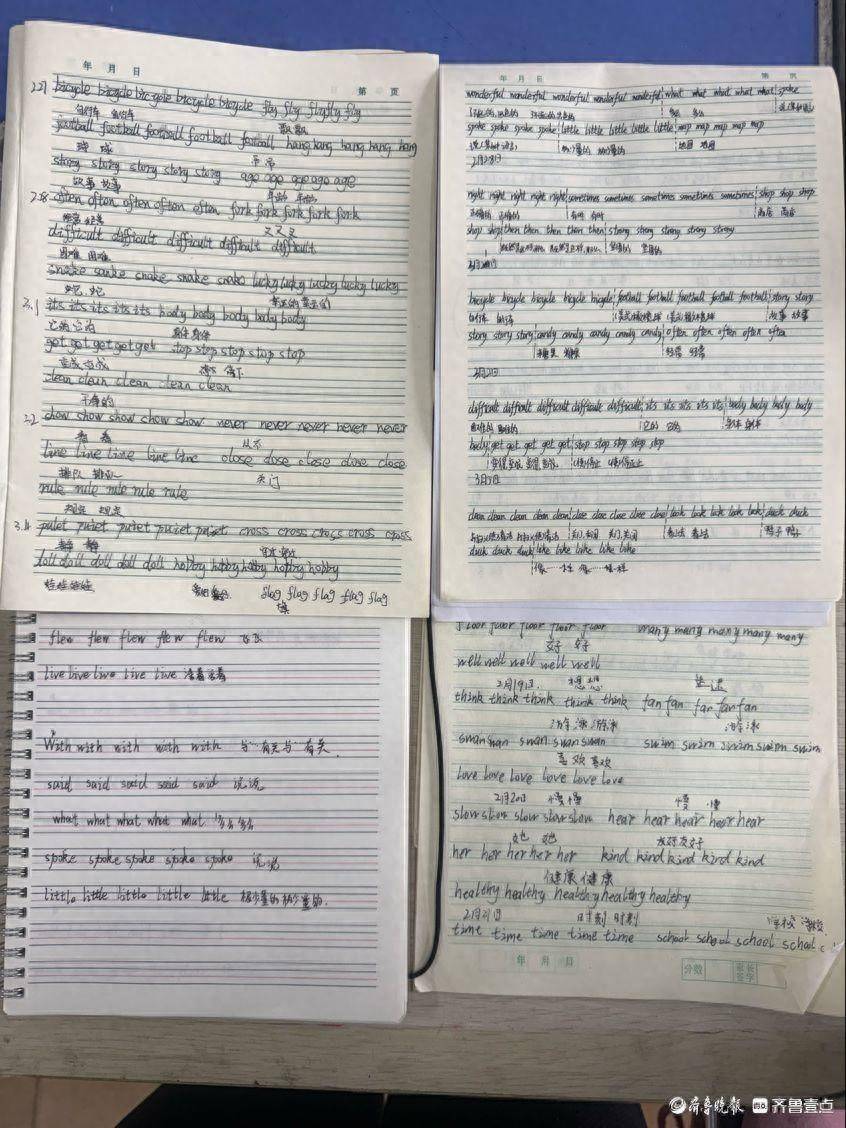 年 月 日
第 页
2.27 bicycle bicycle bicycle bicycle bicycle fly fly fly fly fly
自行车 自行车
football football football football football hang hang hang hang hang
story story story story story age age age age age
故事 故事 年龄 年龄
2.28 often often often often often fork fork fork fork fork
经常 经常
difficult difficult difficult difficult difficult
困难 困难 叉 叉 叉
snake sanke snake snake snake lucky lucky lucky lucky lucky
蛇 蛇
3.1 its its its its its body body body body body
它的 它的 身体 身体
get get get get get stop stop stop stop stop
变成 变成 停下
clean clean clean clean clean
干净的
3.2 show show show show show never never never never never
看 看 从不
line line line line line close close close close close
排队 排队 关门
rule rule rule rule rule
规定 规定
3.4 puiet puiet puiet puiet puiet cross cross cross cross cross
安静 安静
doll doll doll doll doll hobby hobby hobby hobby hobby
娃娃 娃娃
flag flag flag flag flag
旗
年 月 日
第 页
wonderful wonderful wonderful wonderful wonderful what what what what what spoke
spoke spoke spoke spoke little little little little little map map map map map
地图 地图
2月28日
right right right right right sometimes sometimes sometimes sometimes sometimes shop shop shop
正确的 正确的 有时 有时 商店 商店
shop shop then then then then then strong strong strong strong strong
坚强的 坚强的
bicycle bicycle bicycle bicycle bicycle football football football football football story story
自行车 自行车 故事 故事
story story story candy candy candy candy candy often often often often often
糖果 糖果 经常 经常
3月2日
difficult difficult difficult difficult difficult its its its its its body body body body
困难的 困难的 它的 它的 身体 身体
body get get get get get stop stop stop stop stop
clean clean clean clean clean close close close close close look look look look look duck duck
关门,关闭 关门,关闭 看法 看法 鸭子 鸭子
duck duck duck like like like like like
像……一样 像……一样
flew flew flew flew flew 飞 飞
live live live live live 活着 活着
With with with with with 与··有关 与··有关
said said said said said 说 说
what what what what what 多么 多么
spoke spoke spoke spoke spoke 说 说
little little little little little 极少量的 极少量的
floor floor floor floor floor many many many many many
好 好
well well well well well
2月19日. 想 想
think think think think think fan fan fan fan fan
游泳 游泳 游泳
swan swan swan swan swan swim swim swim swim swim
喜欢 喜欢
Love Love Love Love Love Love
2月20日 慢 慢 慢 慢
slow slow slow slow slow hear hear hear hear hear
她 她 友好 友好
her her her her her kind kind kind kind kind
健康 健康
healthy healthy healthy healthy healthy
2月21日 时刻 时刻 学校 学校
time time time time time school school school school
年 月 日
分数
班长签字
齐鲁晚报 齐鲁壹点